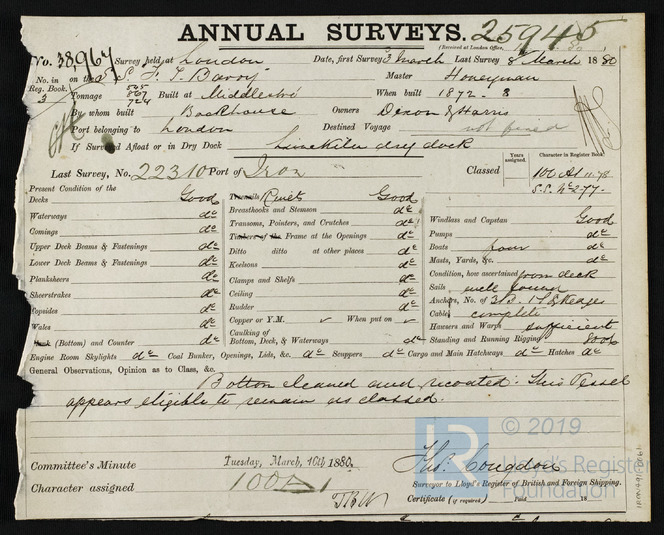 ANNUAL SURVEYS. 25945
(Received at London Office,
No. 38,967 Survey held at London Date, first Survey 3 March Last Survey 8 March 1880
No. in Reg. Book. 3 on the S.S. F. T. Barry Master Honeyman
Tonnage 867 724 Built at Middlesbro When built 1872 - 8
By whom built Backhouse Owners Dixon & Harris
Port belonging to London Destined Voyage not fixed
If Surveyed Afloat or in Dry Dock Limekiln dry dock
Last Survey, No. 22310 Port of Iron Classed Years assigned. Character in Register Book. 100 A1 11-78
S.S. No 2-77.
Present Condition of the
Decks Good
Waterways do
Comings do
Upper Deck Beams & Fastenings do
Lower Deck Beams & Fastenings do
Planksheers do
Sheerstrakes do
Topsides do
Wales do
(Bottom) and Counter do
Treenails Rivets Good
Breasthooks and Stemson do
Transoms, Pointers, and Crutches do
Timbers of the Frame at the Openings do
Ditto ditto at other places do
Keelsons do
Clamps and Shelfs do
Ceiling do
Rudder do
Copper or Y.M. When put on
Caulking of
Bottom, Deck, & Waterways do
Windlass and Capstan Good
Pumps do
Boats four do
Masts, Yards, &c. do
Condition, how ascertained from deck
Sails well found
Anchors, No. of 3 B. 1 S & Kedges
Cables complete
Hawsers and Warps sufficient
Standing and Running Rigging Good
Engine Room Skylights do Coal Bunker, Openings, Lids, &c. do Scuppers do Cargo and Main Hatchways do Hatches do
General Observations, Opinion as to Class, &c.
Bottom cleaned and recoated. This Vessel
appears eligible to remain as classed.
© 2019
Lloyd's Register
Foundation
Committee's Minute Tuesday, March, 16th 1880.
Character assigned 100 A 1
Thos. Congdon
Surveyor to Lloyd's Register of British and Foreign Shipping.
Certificate (if required) Paid 18